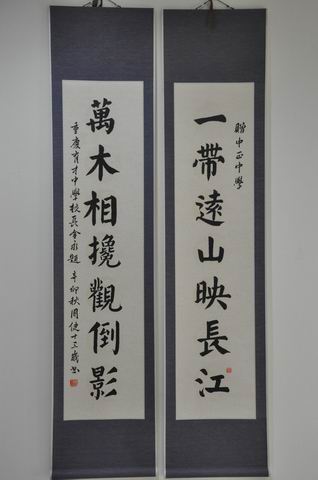 贈中正中學
一帶遠山映長江
萬木相攙觀倒影
重慶育才中學校長余永題 辛卯秋周健十三歲書